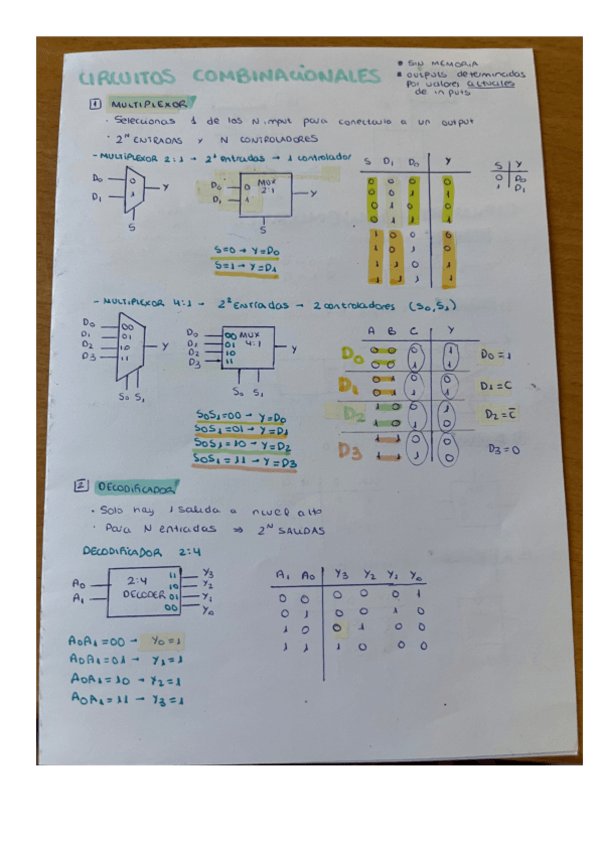 CIRCUITOS COMBINACIONALES
• SIN MEMORIA
• outputs determinadas
por valores actuales
de inputs
1 MULTIPLEXOR
· Seleccionas 1 de los N input para conectarlo a un output
· 2^N ENTRADAS y N CONTROLADORES
- MULTIPLEXOR 2:1 → 2¹ entradas → 1 controlador
D0 0
D1 1
Y
S
D0 0 MUX
D1 1 2:1
Y
S
S=0 → Y=D0
S=1 → Y=D1
S D1 D0 Y
0 0 0 0
0 0 1 1
0 1 0 0
0 1 1 1
1 0 0 0
1 0 1 0
1 1 0 1
1 1 1 1
S Y
0 D0
1 D1
- MULTIPLEXOR 4:1 → 2² Entradas → 2 controladores (S0, S1)
D0 00
D1 01
D2 10
D3 11
Y
S0 S1
D0 00 MUX
D1 01 4:1
D2 10
D3 11
Y
S0 S1
S0S1=00 → Y=D0
S0S1=01 → Y=D1
S0S1=10 → Y=D2
S0S1=11 → Y=D3
A B C Y
D0 0 0 0 1
0 0 1 1
D0=1
D1 0 1 0 0
0 1 1 1
D1=C
D2 1 0 0 1
1 0 1 0
D2=C̅
D3 1 1 0 0
1 1 1 0
D3=0
2 DECODIFICADOR
· Solo hay 1 salida a nivel alto
· Para N entradas ⇒ 2^N SALIDAS
DECODIFICADOR 2:4
A0
A1
2:4
DECODER
11 Y3
10 Y2
01 Y1
00 Y0
A0A1=00 → Y0=1
A0A1=01 → Y1=1
A0A1=10 → Y2=1
A0A1=11 → Y3=1
A1 A0 Y3 Y2 Y1 Y0
0 0 0 0 0 1
0 1 0 0 1 0
1 0 0 1 0 0
1 1 1 0 0 0